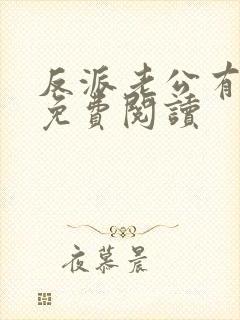 反派老公有
免費閱讀
夜慕晨